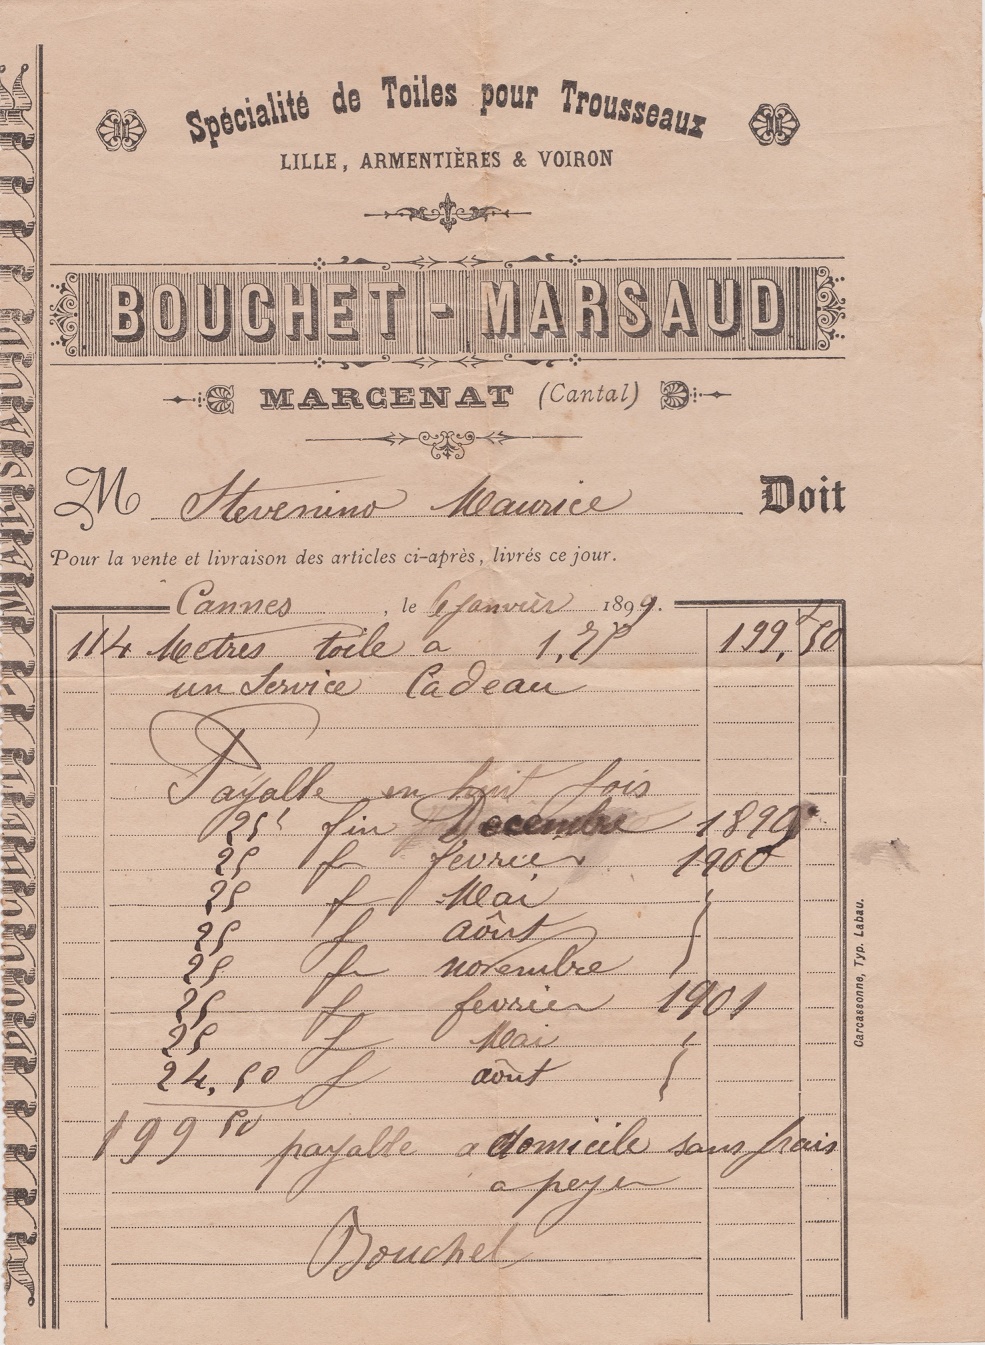 Spécialité de Toiles pour Trousseaux
LILLE, ARMENTIÈRES & VOIRON
BOUCHET - MARSAUD
MARCENAT (Cantal)
M Stevenino Maurice Doit
Pour la vente et livraison des articles ci-après, livrés ce jour.
Cannes, le 6 janvier 1899.
114 Metres toile a 1,75 199,50
un Service Cadeau
Payable en huit fois
25f fin Decembre 1899
25 f fevrier 1900
25 f Mai
25 f août
25 f novembre
25 f fevrier 1901
25 f Mai
24,50 f août
199 50 payable a domicile sans frais
a peyer
Bouchet
Carcassonne, Typ. Labau.